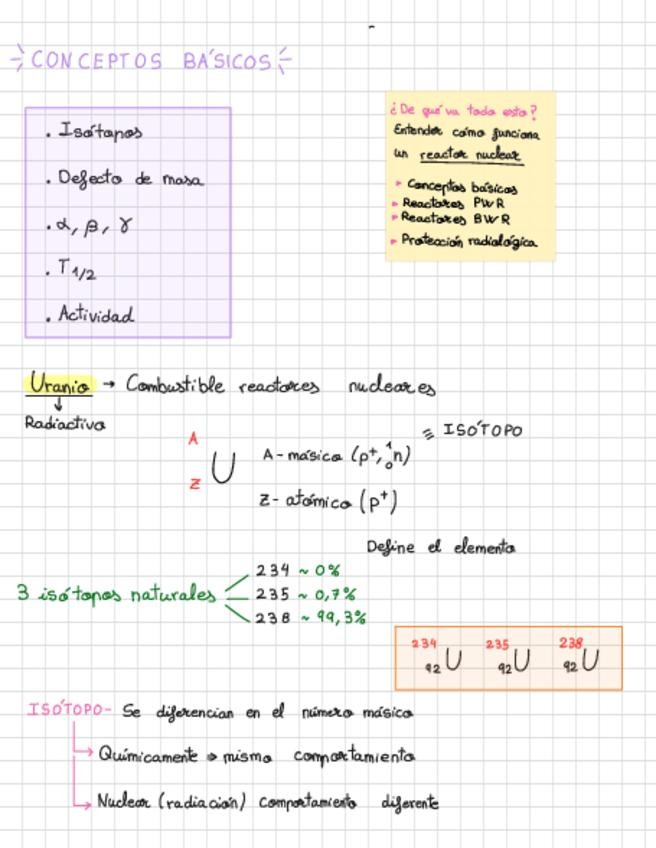 CONCEPTOS BÁSICOS
. Isótopos
. Defecto de masa
. α, β, γ
. T 1/2
. Actividad
¿De qué va todo esto?
Entender cómo funciona
un reactor nuclear
▸ Conceptos básicos
▸ Reactores PWR
▸ Reactores BWR
▸ Protección radiológica
Uranio → Combustible reactores nucleares
↓
Radiactivo
A
Z U
A - másico (p⁺, ¹₀n) ≡ ISÓTOPO
Z - atómico (p⁺)
Define el elemento
3 isótopos naturales
234 ~ 0%
235 ~ 0,7%
238 ~ 99,3%
²³⁴₉₂U ²³⁵₉₂U ²³⁸₉₂U
ISÓTOPO - Se diferencian en el número másico
→ Químicamente → mismo comportamiento
→ Nuclear (radiación) comportamiento diferente